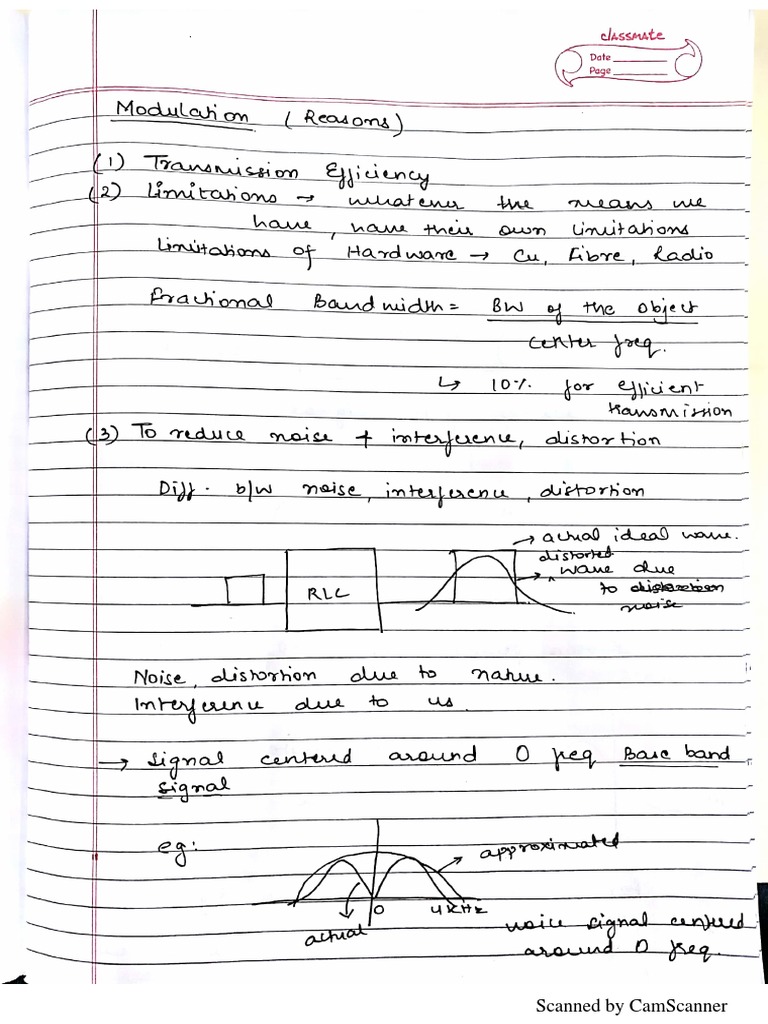 classmate
Date
Page
Modulation (Reasons)
(1) Transmission Efficiency
(2) Limitations → whatever the means we
have, have their own limitations
Limitations of Hardware → Cu, Fibre, Radio
Fractional Bandwidth = BW of the object
center freq.
↳ 10% for efficient
transmission
(3) To reduce noise + interference, distortion
Diff. b/w noise, interference, distortion
→ actual ideal wave.
distorted
RLC
→ wave due
to distortion
noise
Noise, distortion due to nature.
Interference due to us.
→ Signal centered around 0 freq Base band
signal
eg:
approximated
0
4KHz
actual
voice signal centered
around 0 freq.
Scanned by CamScanner